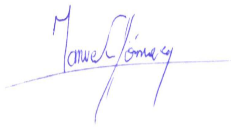 Manuel Gómez